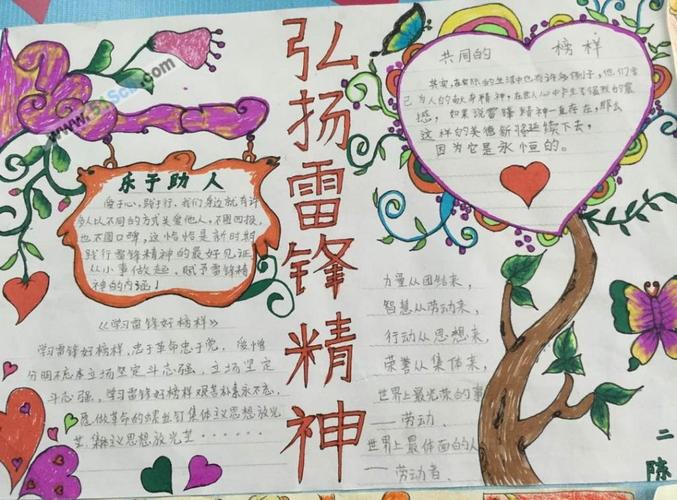 弘扬雷锋精神
乐于助人
爱于心,践于行,我们身边就有许
多人以不同的方式关爱他人,不图回报,
也不图口碑,这恰恰是新时期
践行雷锋精神的最好见证
从小事做起,赋予雷锋精
神的内涵!
《学习雷锋好榜样》
学习雷锋好榜样,忠于革命忠于党,爱憎
分明不忘本立场坚定斗志强,立场坚定
斗志强,学习雷锋好榜样艰苦朴素永不忘,
愿做革命的螺丝钉集体主义思想放光
芒,集体主义思想放光芒……
共同的 榜样
其实,在实际的生活中也有许多
己为人的献身精神,在世人心中产生了强烈的震
撼,如果说雷锋精神一直存在,那么
这样的美德新将延续下去,
因为它是永恒的。
力量从团结来,
智慧从劳动来,
行动从思想来,
荣誉从集体来,
世界上最光荣的事
——劳动.
世界上最体面的人
——劳动者.
二
陈